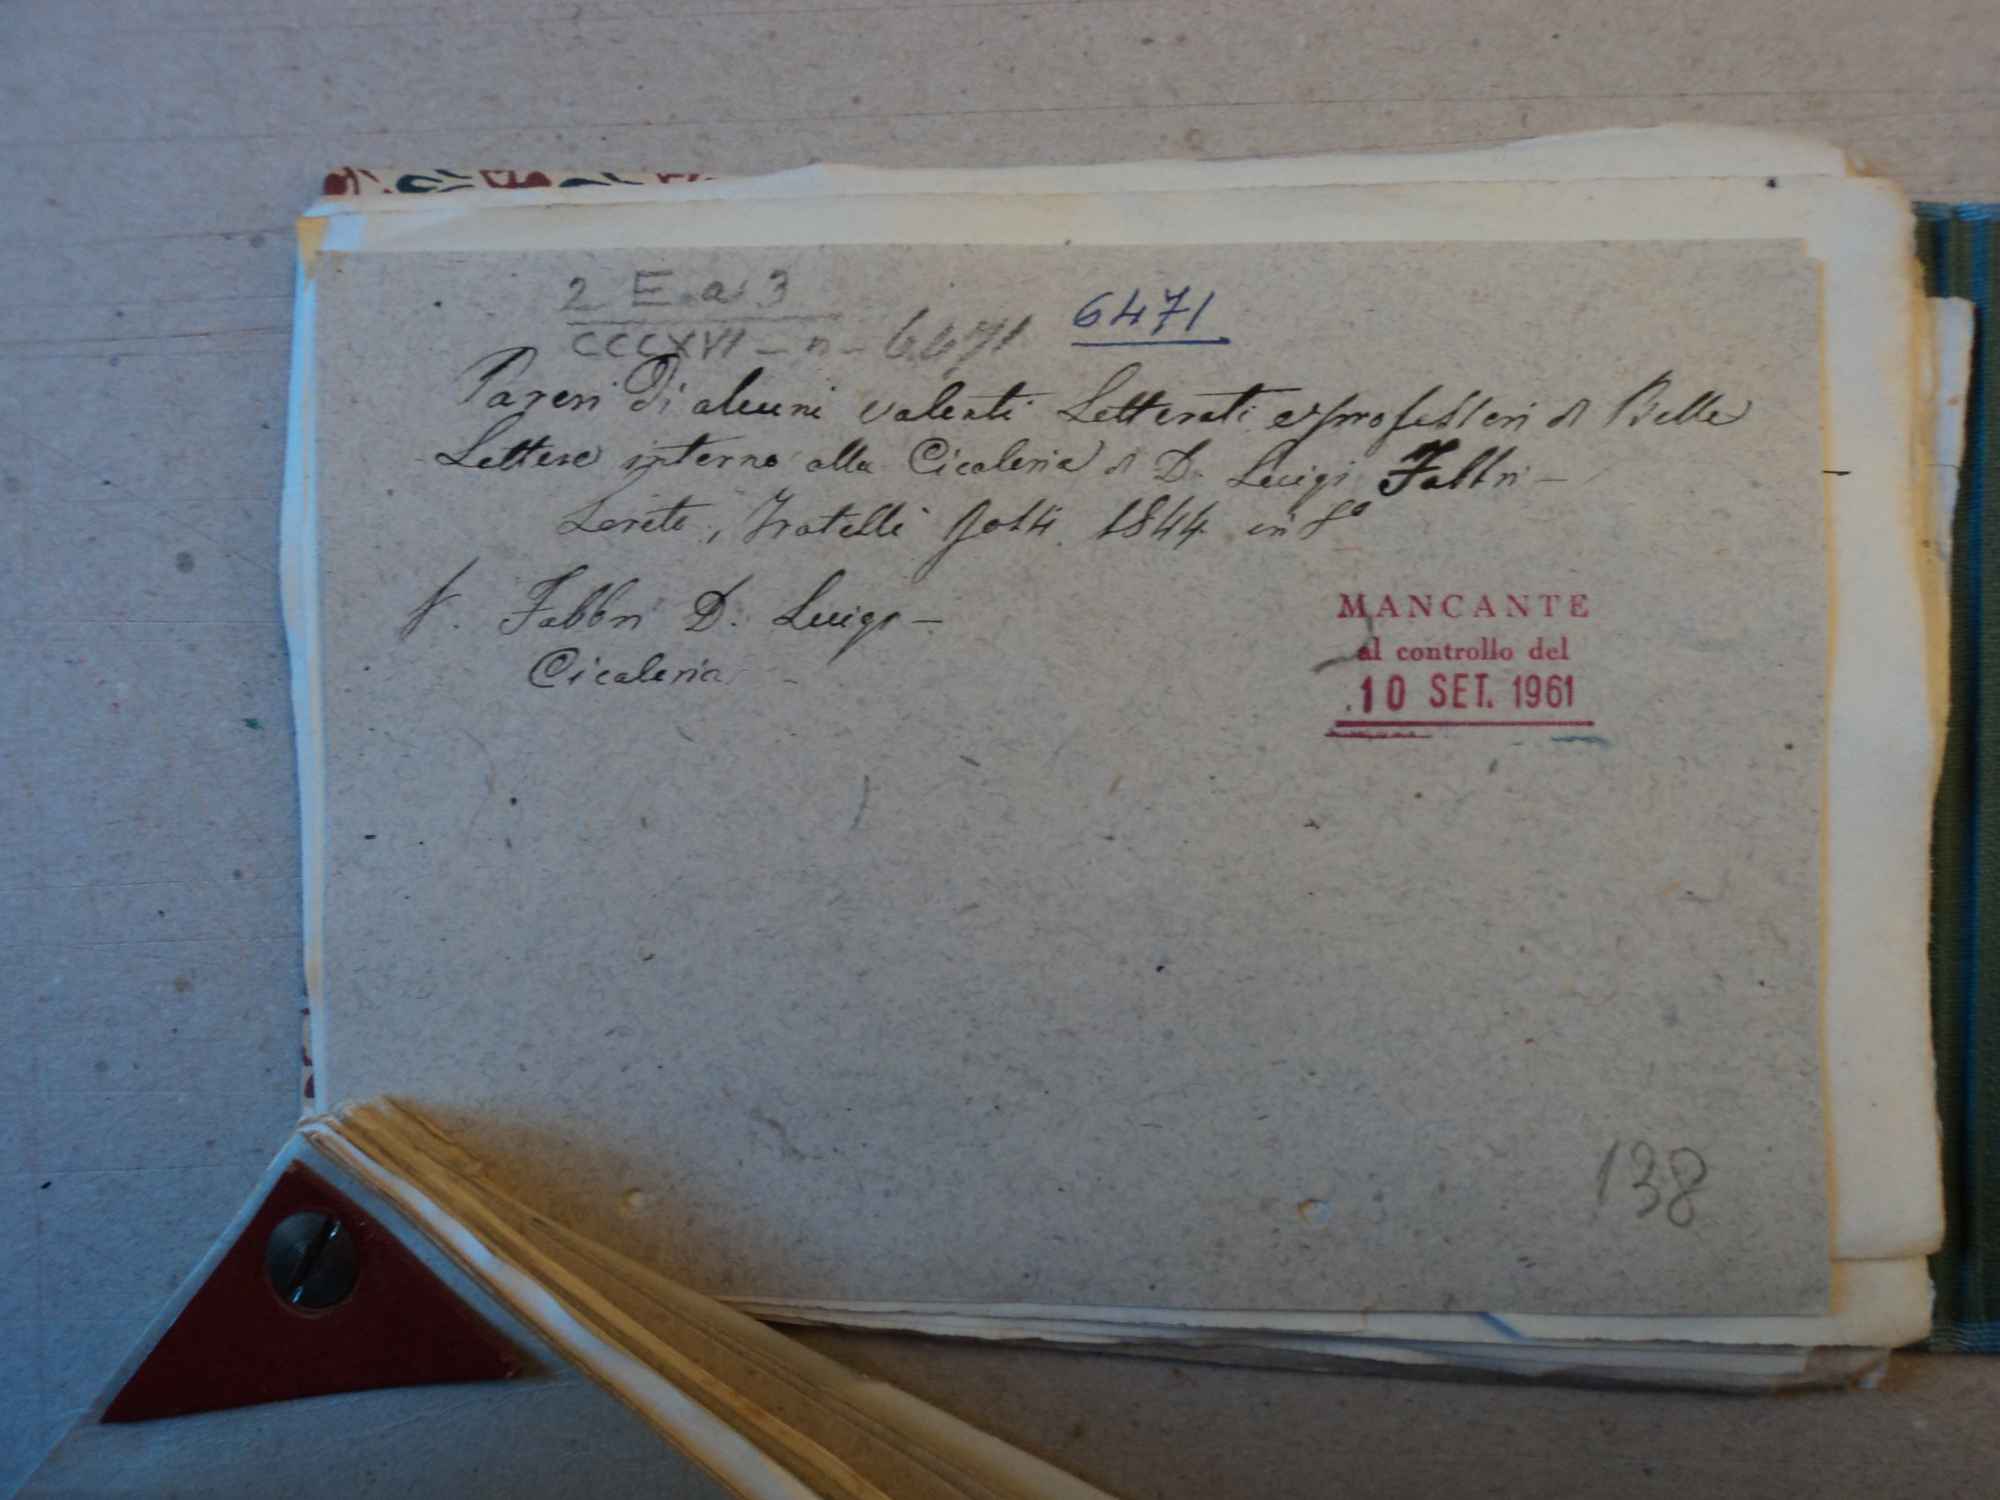 2 E.a.3
CCCXVI - n - 6471
6471
Pareri di alcuni valenti Letterati e professori di Belle
Lettere intorno alla Cicaleria di D. Luigi Fabbri -
Loreto, Fratelli Rossi 1844 in 8°
V. Fabbri D. Luigi -
Cicaleria -
MANCANTE
al controllo del
10 SET. 1961
138